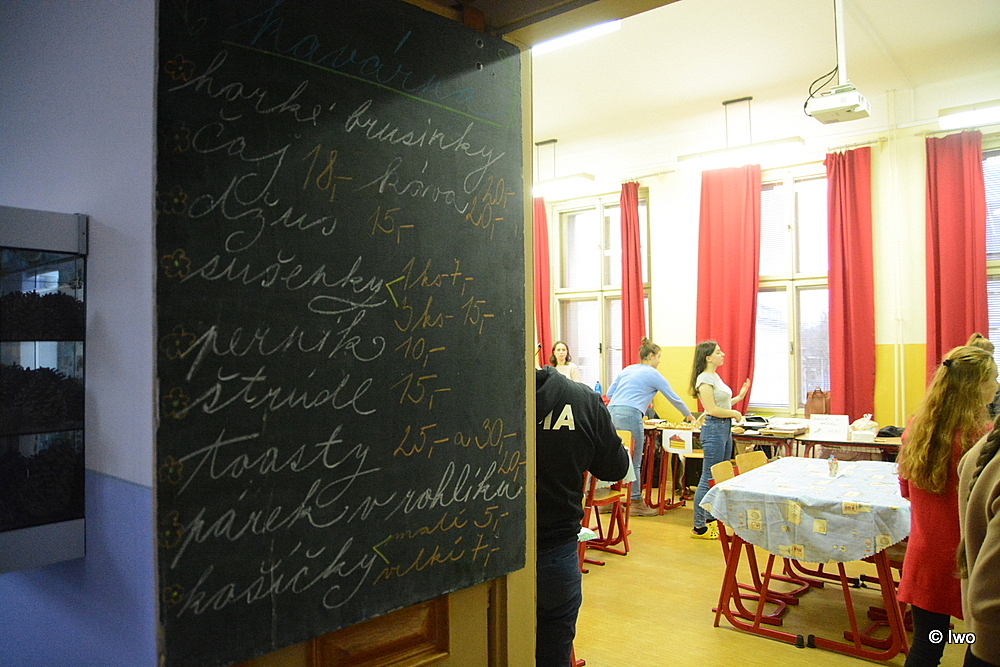 Kavárna
horké brusinky 20,-
čaj 18,- káva 20,-
džus 15,-
sušenky 1ks 7,-
3ks 15,-
perník 10,-
štrúdl 15,-
toasty 25,- a 30,-
párek v rohlíku 20,-
košíčky malí 5,-
velkí 7,-
IA
© lwo